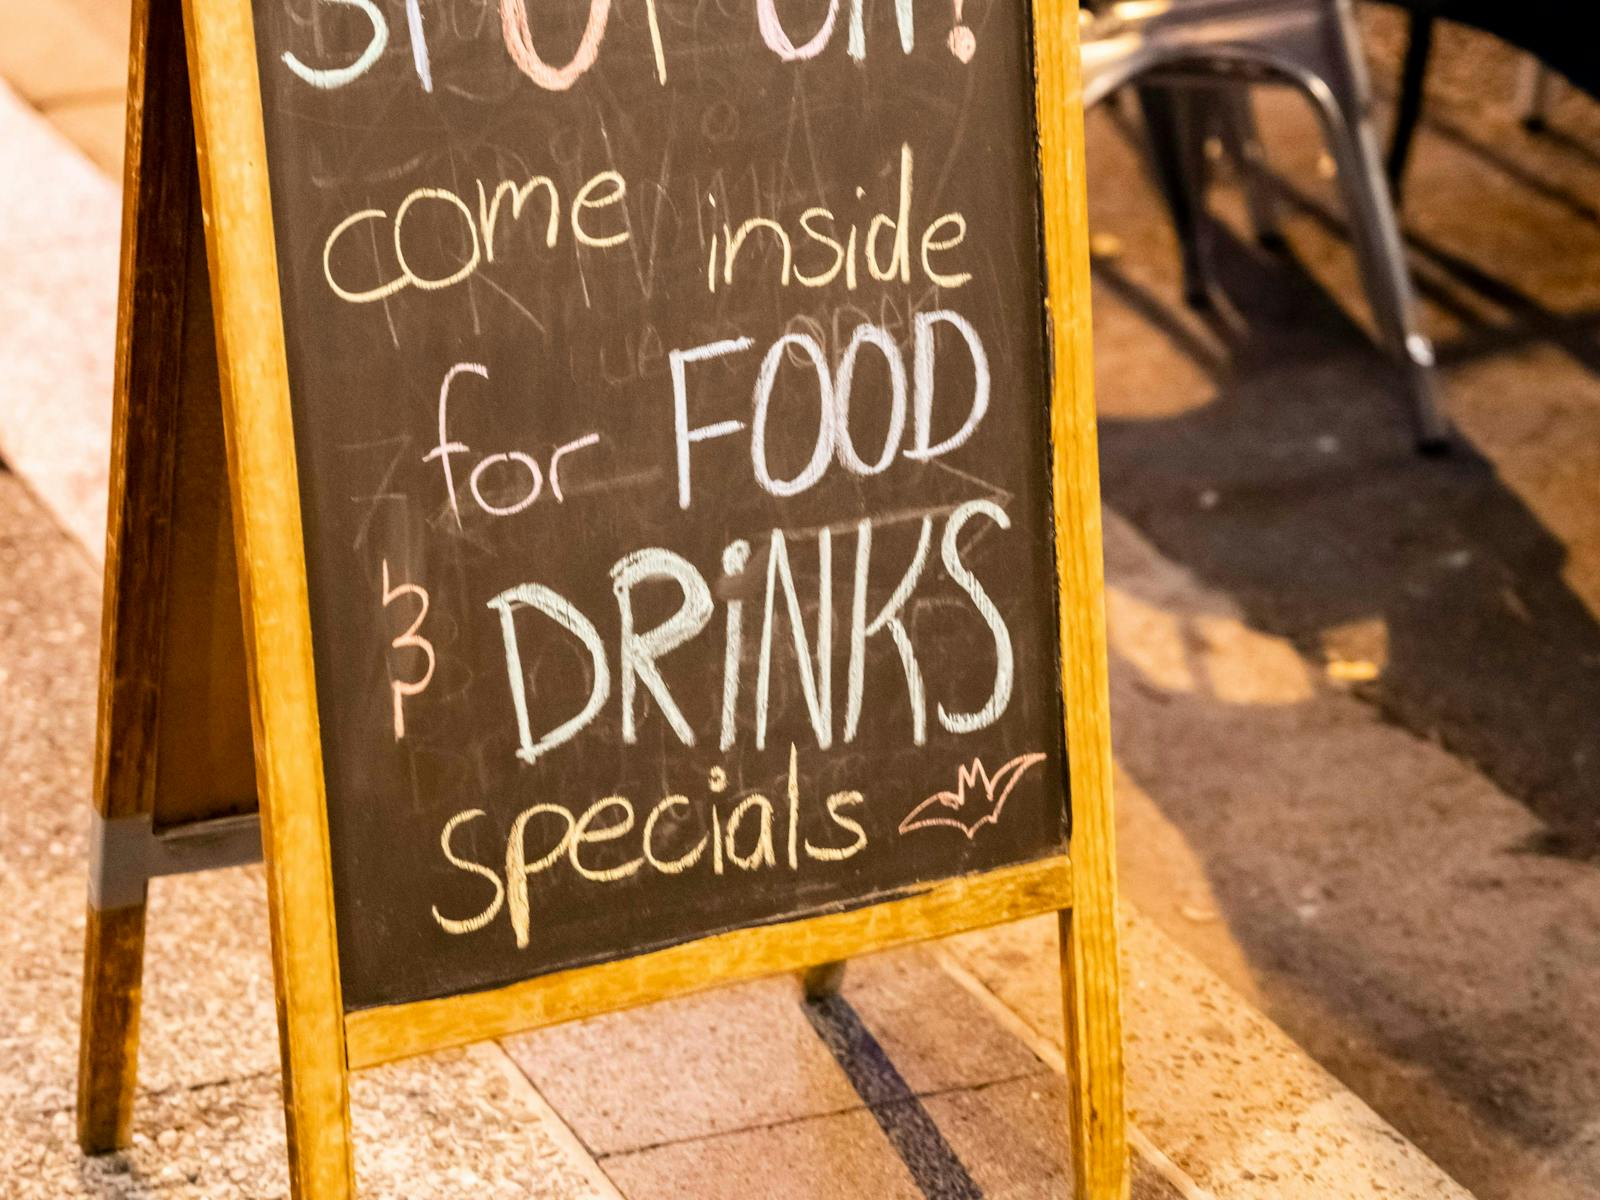 SPOT ON!
come inside
for FOOD
& DRiNKS
specials